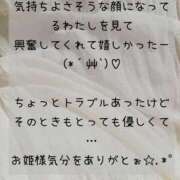 気持ちよさそうな顔になって
るわたしを見て
興奮してくれて嬉しかったー
(*´艸`)♡
ちょっとトラブルあったけど
そのときもとっても優しくて
…
お姫様気分をありがとぉ☆.*°